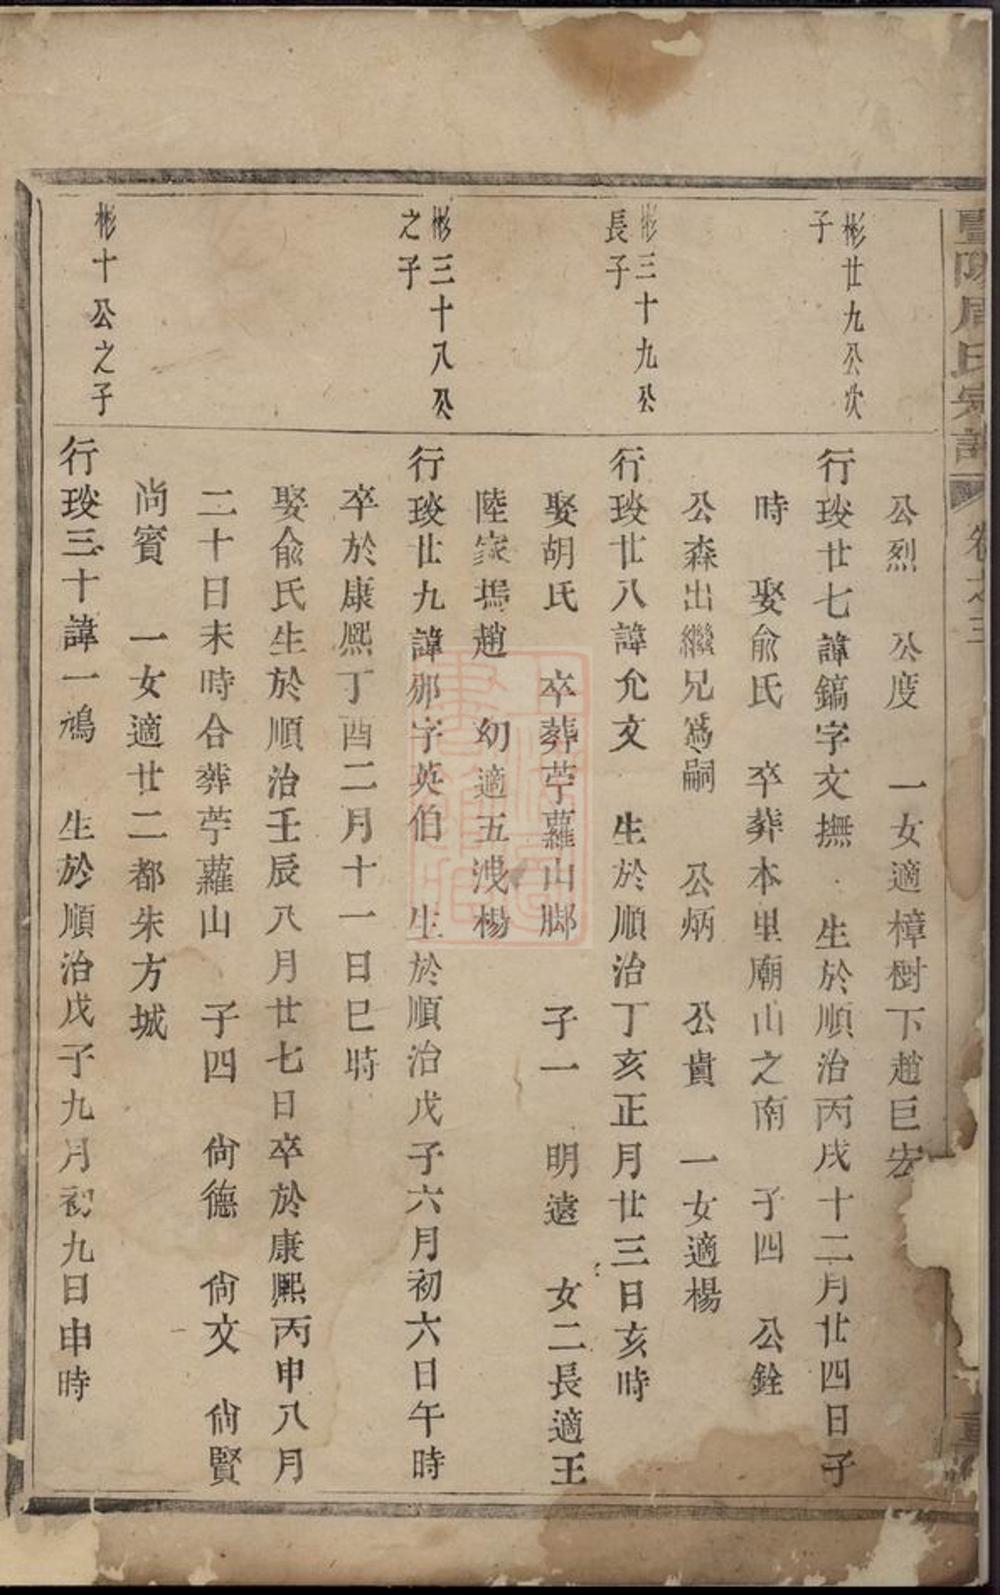 暨陽周氏宗譜 卷之三
公烈 公度 一女適樟樹下趙巨宏
彬廿九公次
子
行琰廿七諱鎬字文撫 生於順治丙戌十二月廿四日子
時 娶俞氏 卒葬本里廟山之南 子四 公銓
公森出繼兄為嗣 公炳 公貴 一女適楊
彬三十九公
長子
行琰廿八諱允文 生於順治丁亥正月廿三日亥時
娶胡氏 卒葬苧蘿山脚 子一 明遠 女二長適王
陸家塢趙 幼適五洩楊
彬三十八公
之子
行琰廿九諱郷字英伯 生於順治戊子六月初六日午時
卒於康熙丁酉二月十一日巳時
娶俞氏生於順治壬辰八月廿七日卒於康熙丙申八月
二十日未時合葬苧蘿山 子四 尚德 尚文 尚賢
尚賓 一女適廿二都朱方城
彬十公之子
行琰三十諱一鳰 生於順治戊子九月初九日申時